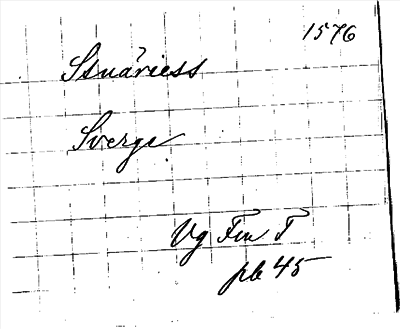 1576
Stnåriess
Sverge
Vg Fru T
pb 45